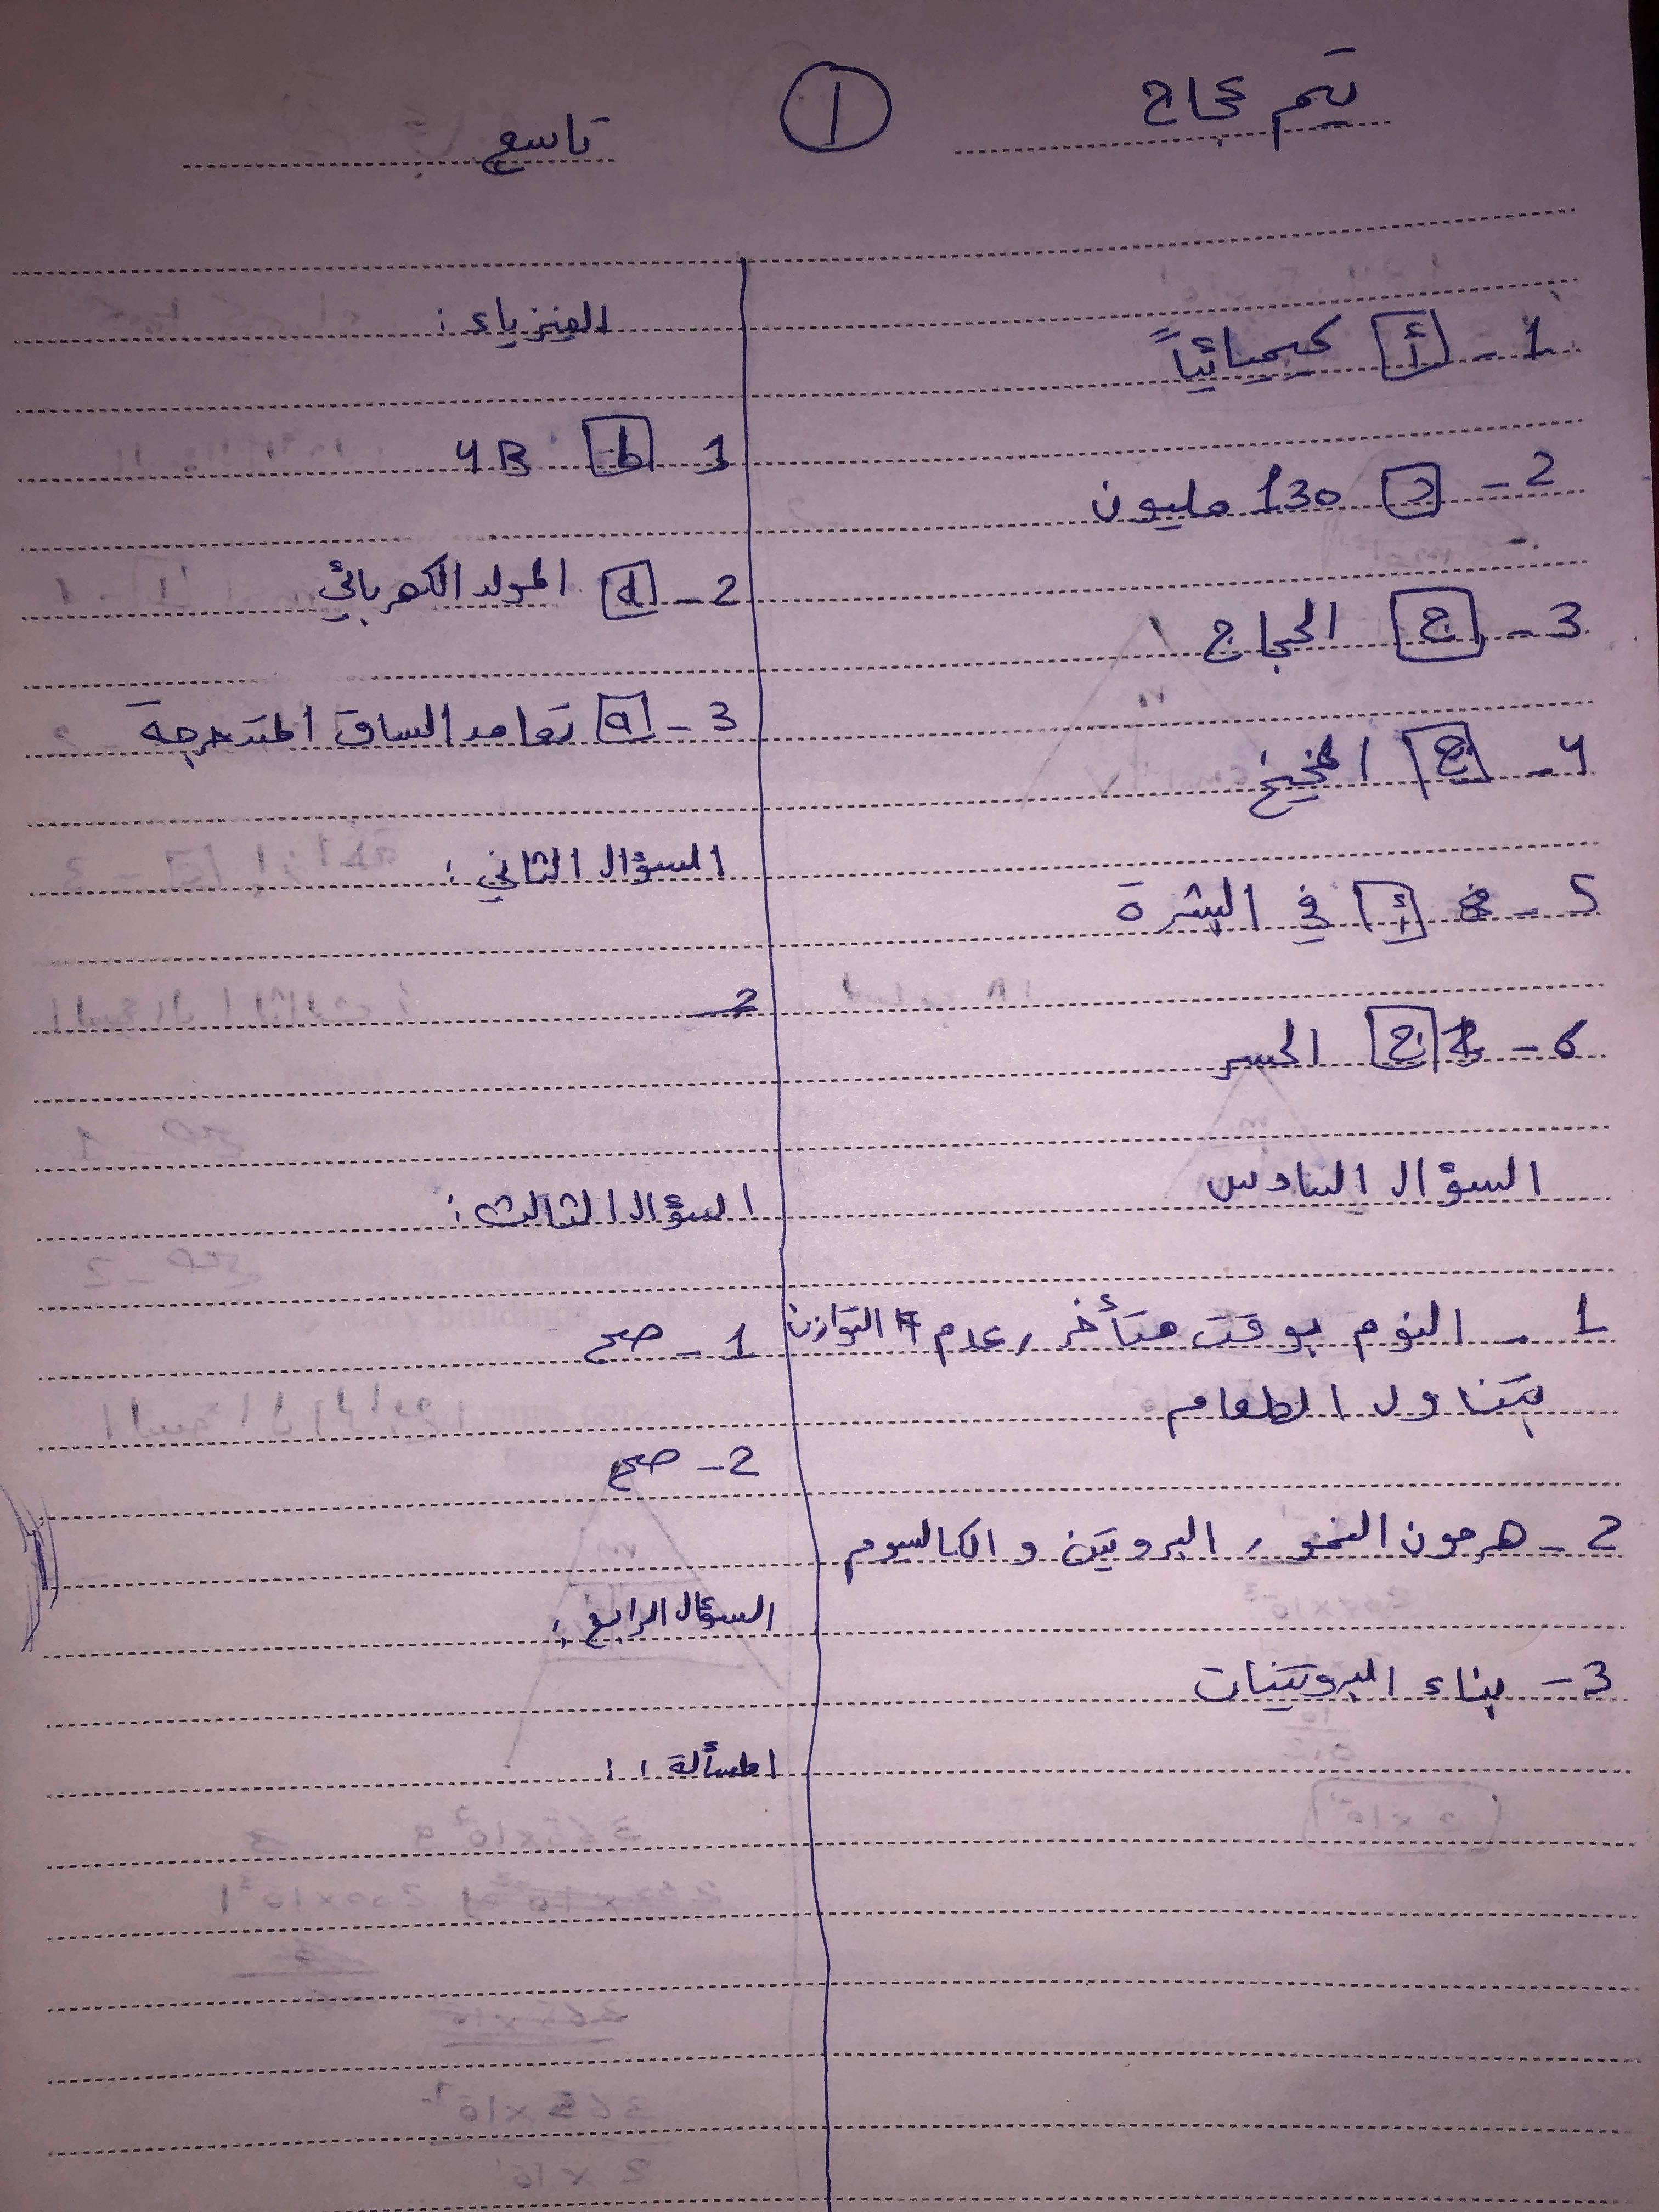 تيم عجاج
1
تاسع
1 - أ كيميائياً
2 - د 130 مليون
3 - ج الحجاج
4 - ج المخيخ
5 - أ في البشرة
6 - ج الحسر
السؤال السادس
1 - النوم بوقت متأخر , عدم التوازن
بتناول الطعام
2 - هرمون النمو , البروتين و الكالسيوم
3 - بناء البروتينات
الفيزياء :
1 b 4B
2 - d المولد الكهربائي
3 - a تعامد الساق المتدحرجة
السؤال الثاني :
2 -
السؤال الثالث :
1 - صح
2 - صح
السؤال الرابع :
المسألة 1 :